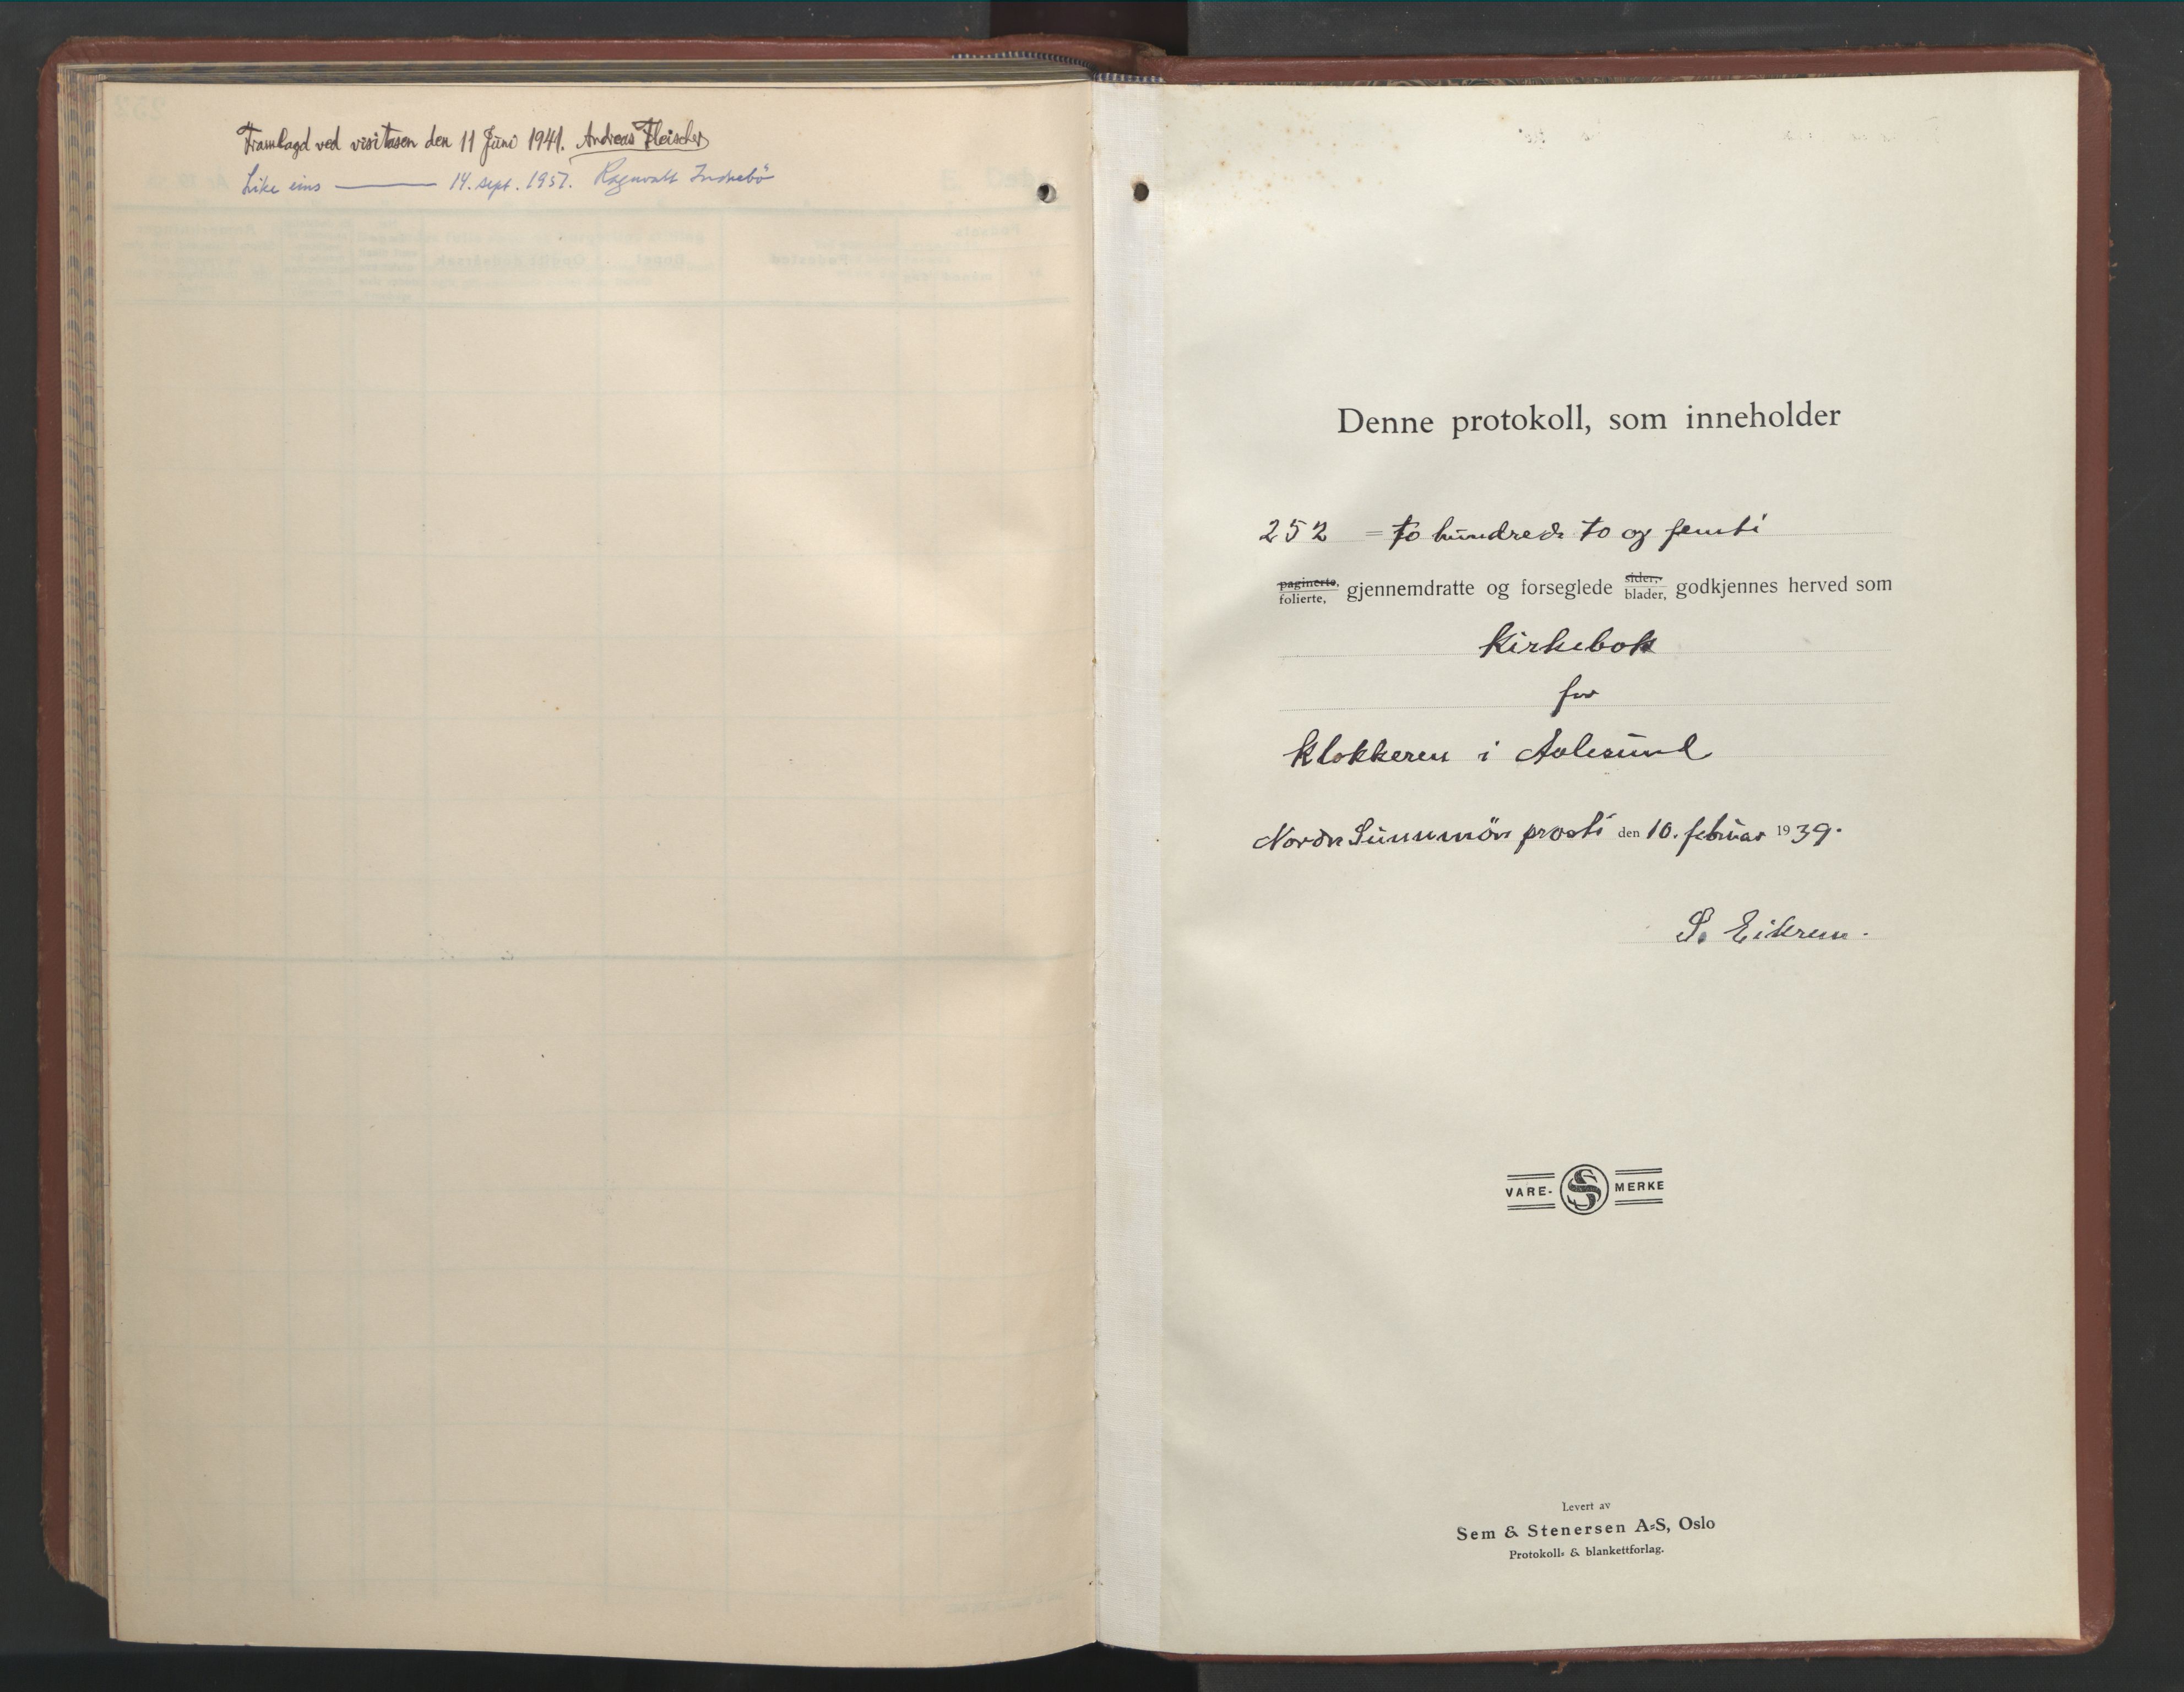 Framlagd ved visitasen den 11 Juni 1941. Andreas Fleischer
Like eins — 14. sept. 1957. Ragnvald Indrebö
Denne protokoll, som inneholder
252 = to hundrede to og femti
paginerte, folierte, gjennemdratte og forseglede sider, blader, godkjennes herved som
Kirkebok
for
klokkeren i Aalesund
Nordre Sunnmör prosti den 10. februar 1939.
S. Eikrem.
VARE- S MERKE
Levert av
Sem & Stenersen A-S, Oslo
Protokoll- & blankettforlag.